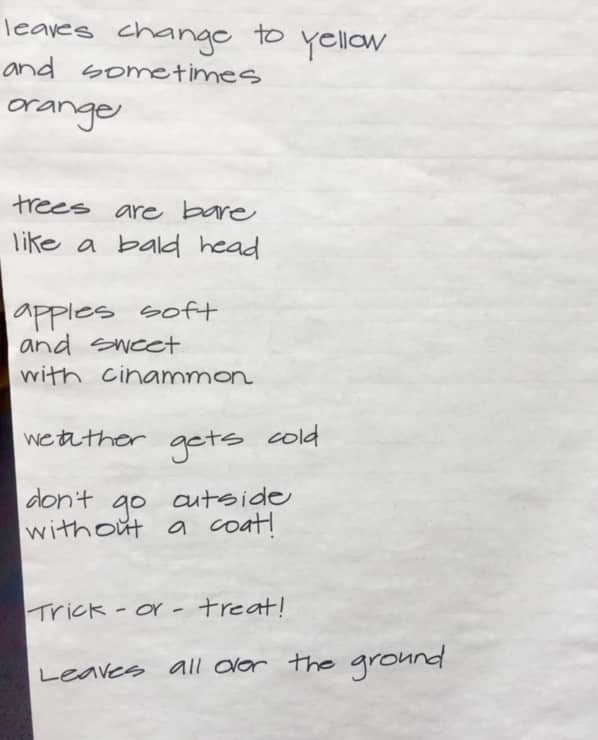 leaves change to yellow
and sometimes
orange
trees are bare
like a bald head
apples soft
and sweet
with cinammon
weather gets cold
don't go outside
without a coat!
Trick-or-treat!
Leaves all over the ground